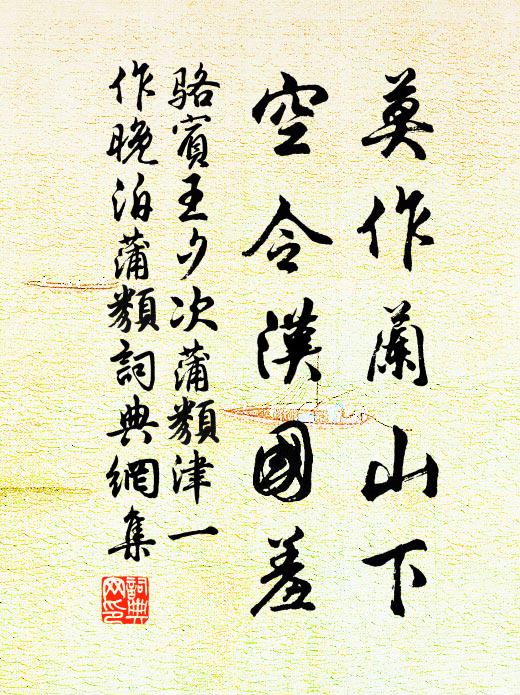 莫作蘭山下
空令漢國羞
駱賓王夕次蒲類津一
作晚泊蒲類詞典網集
詞典
网印